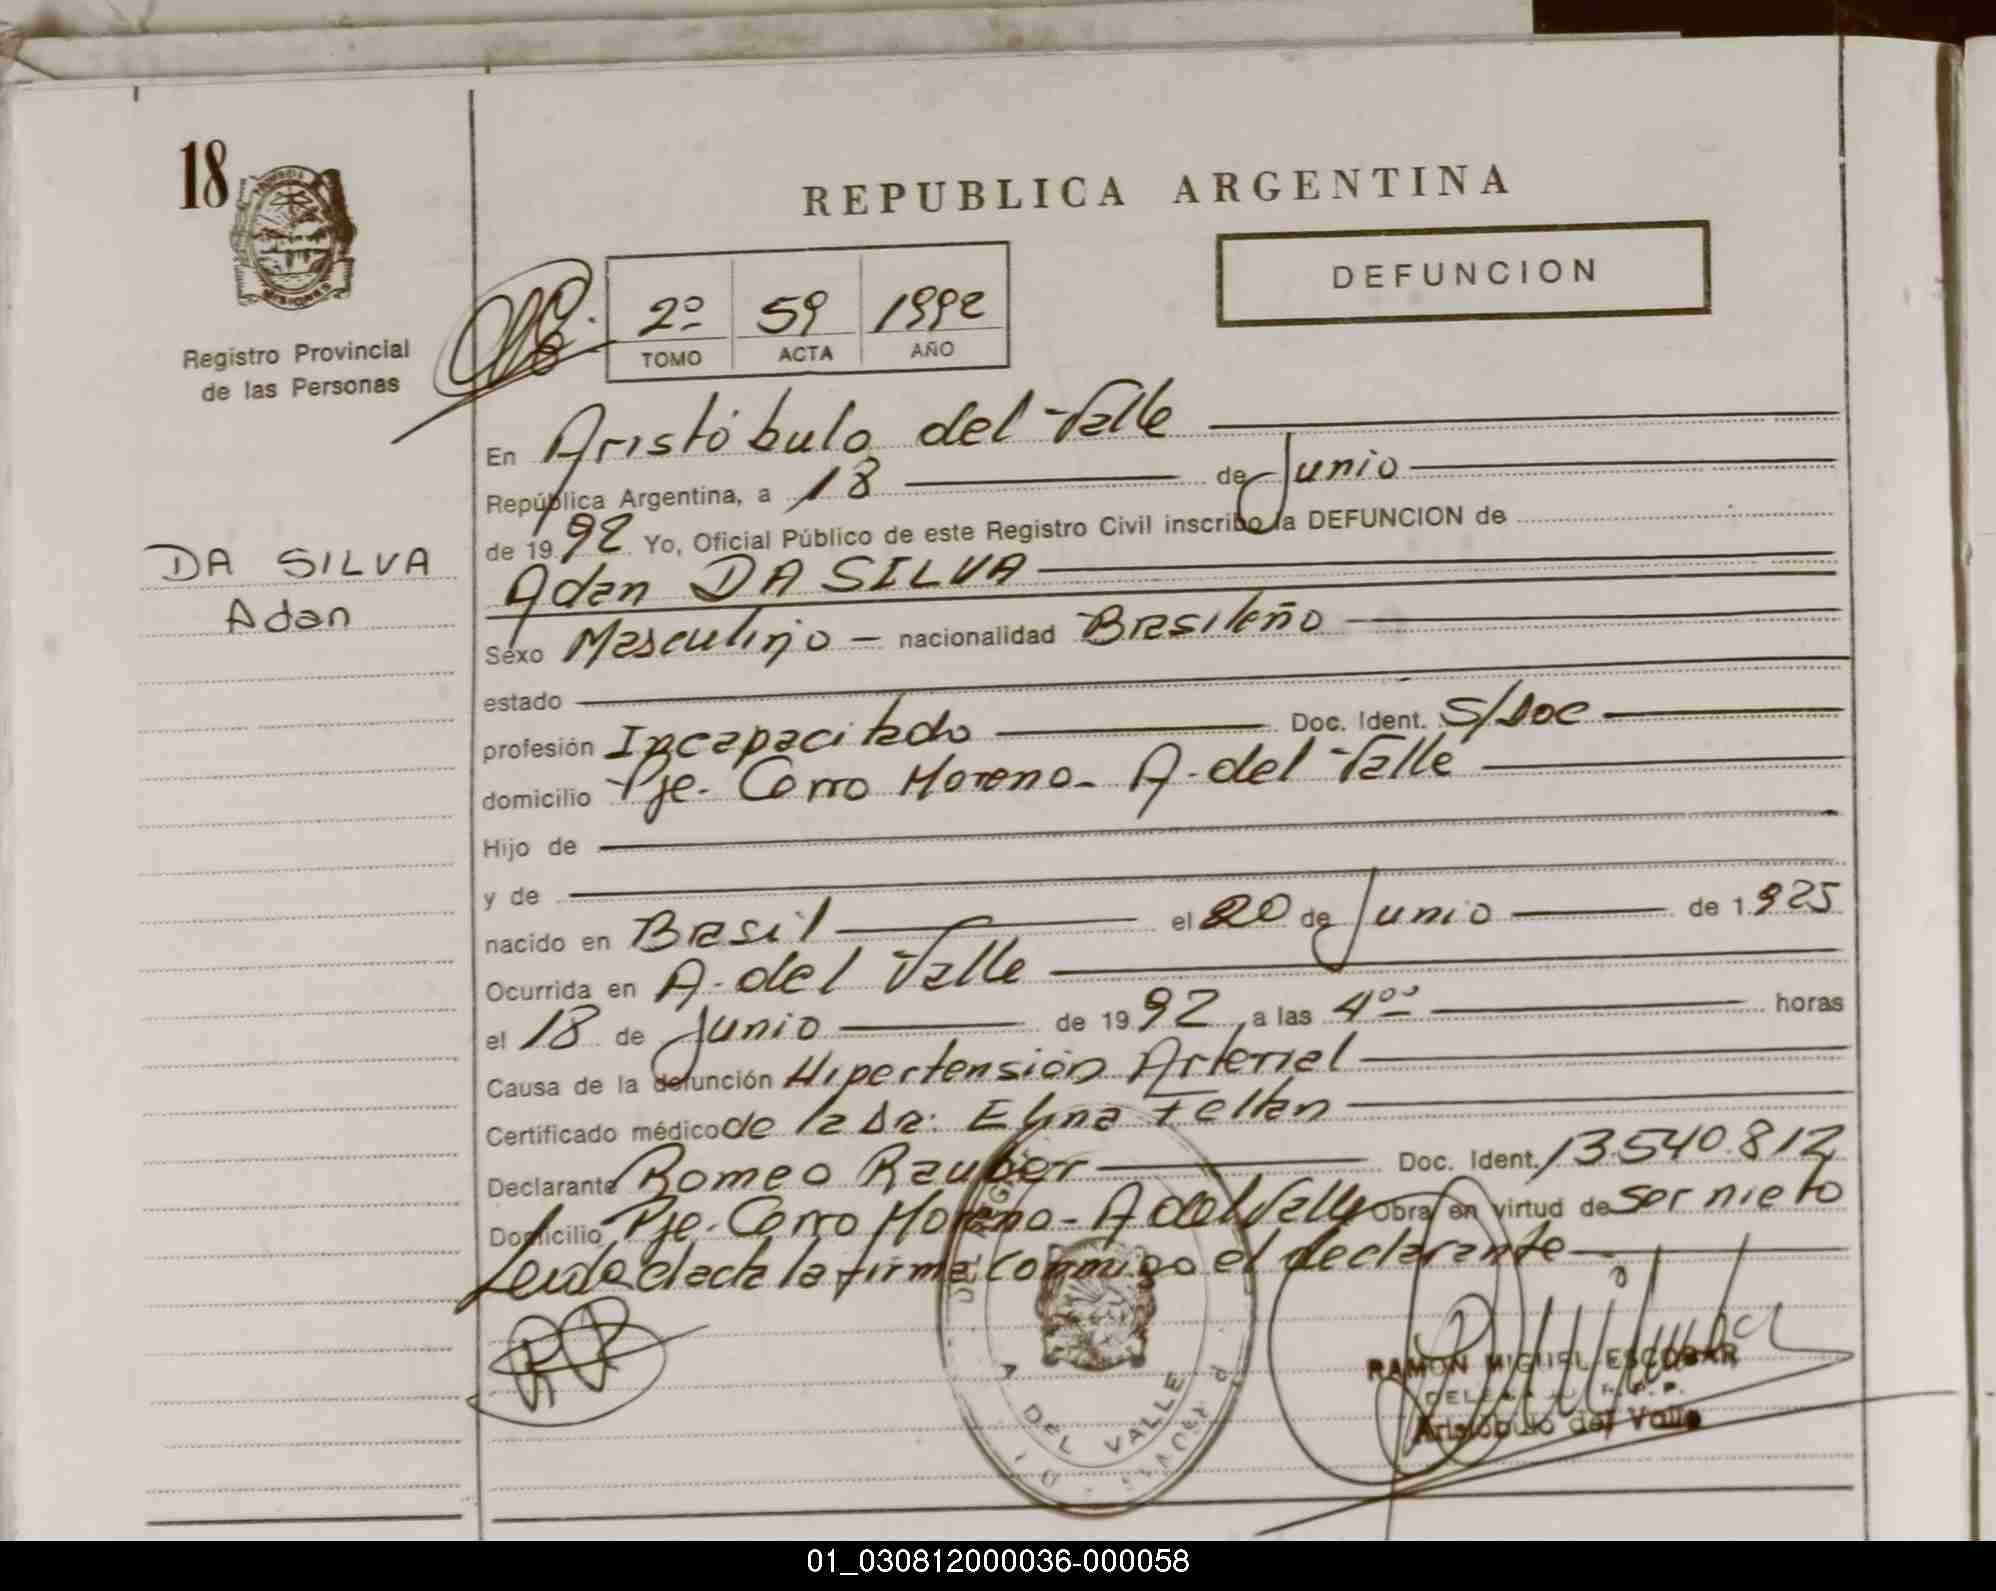 18
MISIONES
Registro Provincial
de las Personas
REPUBLICA ARGENTINA
DEFUNCION
2º 59 1992
TOMO ACTA AÑO
DA SILVA
Adan
En Aristóbulo del Valle
República Argentina, a 18 de Junio
de 1992 Yo, Oficial Público de este Registro Civil inscribo la DEFUNCION de
Adan DA SILVA
Sexo Masculino - nacionalidad Brasileño
estado
profesión Incapacitado Doc. Ident. S/Doc
domicilio Pje. Cerro Moreno - A. del Valle
Hijo de
y de
nacido en Brasil el 20 de Junio de 1.925
Ocurrida en A. del Valle
el 18 de Junio de 1992, a las 4⁰⁰ horas
Causa de la defunción Hipertensión Arterial
Certificado médico de la Dra. Elina Feltan
Declarante Romeo Rauber Doc. Ident. 13.540.812
Domicilio Pje. Cerro Moreno - A del Valle Obra en virtud de ser nieto
Leida el acta la firma conmigo el declarante
A. DEL VALLE
RAMON MIGUEL ESCOBAR
Aristóbulo del Valle
01_030812000036-000058